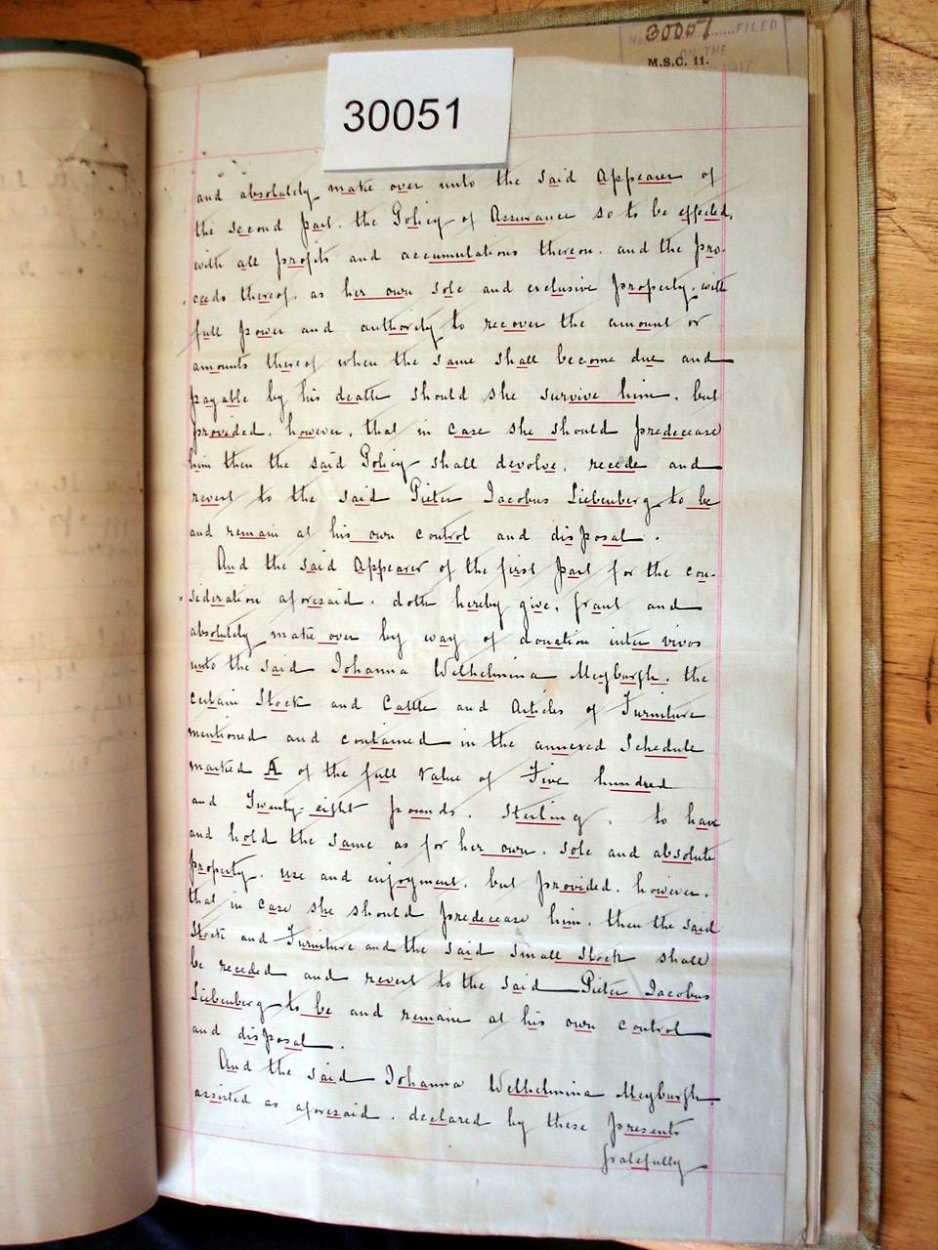 30051 FILED
ON THE
M.S.C. 11. 1917
30051
and absolutely make over unto the said Appearer of
the second Part. the Policy of Assurance so to be effected,
with all profits and accumulations thereon. and the pro-
ceeds thereof. as her own sole and exclusive property. with
full power and authority to recover the amount or
amounts thereof when the same shall become due and
payable by his death should she survive him. but
provided. however, that in case she should predecease
him then the said Policy shall devolve. recede and
revert to the said Pieter Jacobus Liebenberg to be
and remain at his own control and disposal.
And the said Appearer of the first Part for the con-
sideration aforesaid. doth hereby give, grant and
absolutely make over by way of donation inter vivos
unto the said Johanna Welhelmina Meyburgh. the
certain Stock and Cattle and Articles of Furniture
mentioned and contained in the annexed Schedule
marked A of the full value of Five hundred
and Twenty-eight pounds. Sterling. to have
and hold the same as for her own. sole and absolute
property. use and enjoyment. but provided. however.
that in case she should predecease him. then the said
Stock and Furniture and the said small stock shall
be receded and revert to the said Pieter Jacobus
Liebenberg to be and remain at his own control
and disposal.
And the said Johanna Welhelmina Meyburgh.
assisted as aforesaid. declared by these presents
gratefully